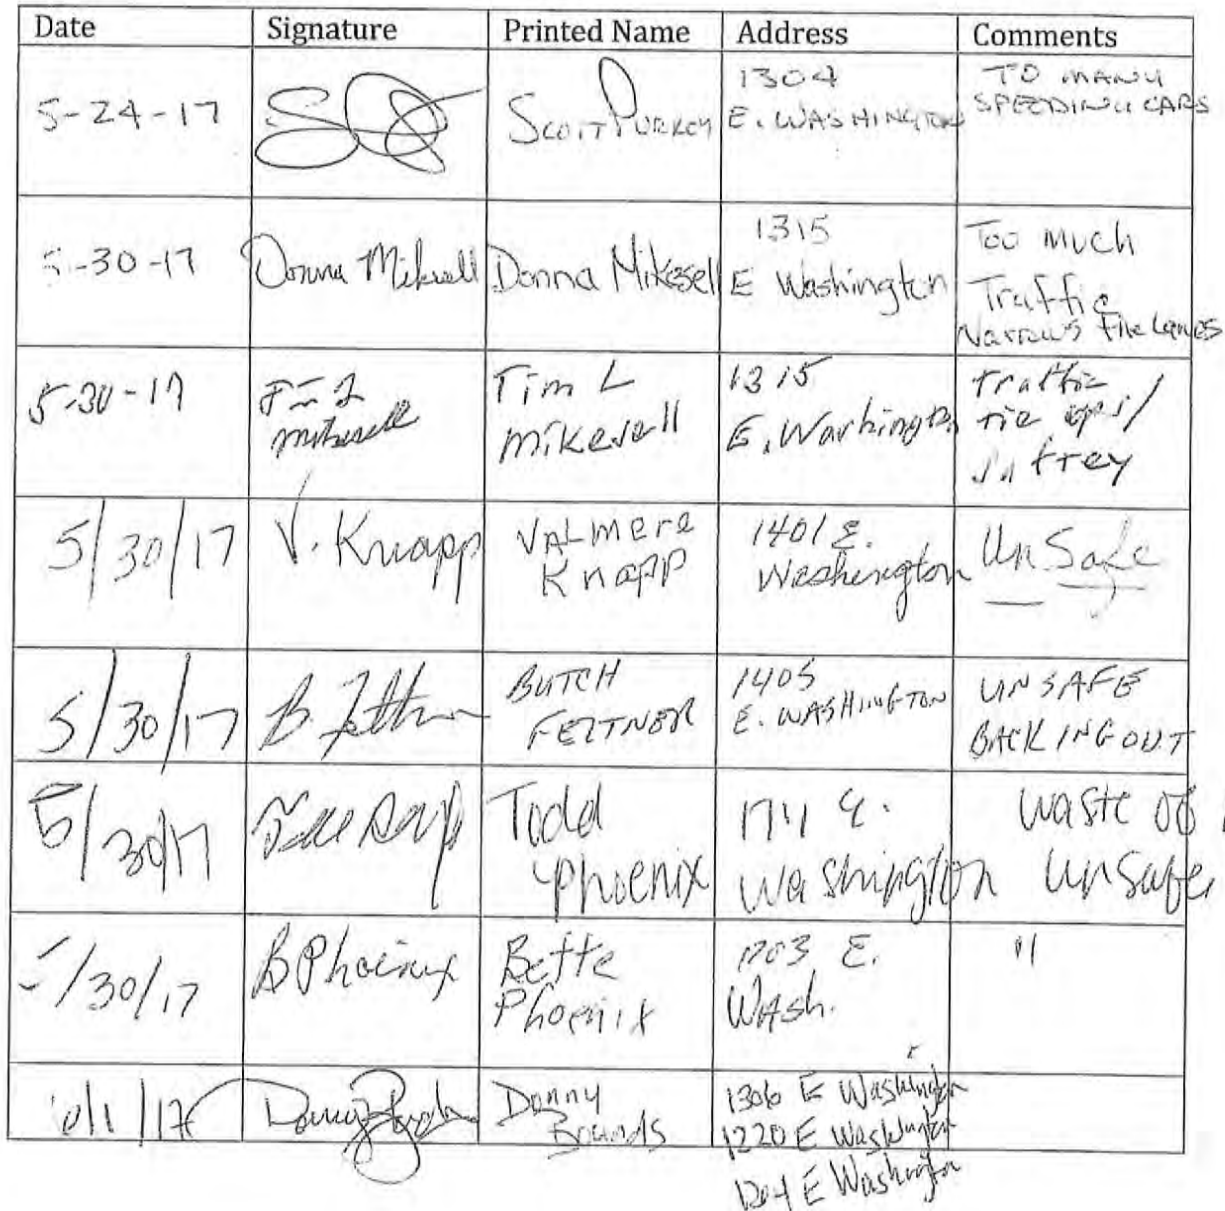 Date Signature Printed Name Address Comments
5-24-17 Scott Purkey 1304 E. WASHINGTON TO MANY SPEEDING CARS
5-30-17 Donna Mikesell Donna Mikesell 1315 E Washington Too Much Traffic Narrows the Lanes
5-30-17 Mikesell Tim L Mikesell 1315 E. Washington traffic tie ups/
5/30/17 V. Knapp VALMERE Knapp 1401 E. Washington UnSafe
5/30/17 B. Feltner BUTCH FELTNER 1405 E. WASHINGTON UNSAFE BACKING OUT
5/30/17 Todd Phoenix 1741 E. Washington waste of unsafe
5/30/17 B Phoenix Bette Phoenix 1703 E. Wash. "
6/1/17 Danny Bounds Danny Bounds 1306 E Washington
1220 E Washington
1204 E Washington